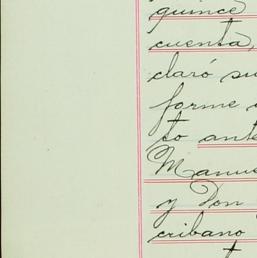 quince
cuenta,
claró su
forme a
to ante
Manue
y Don
cribano